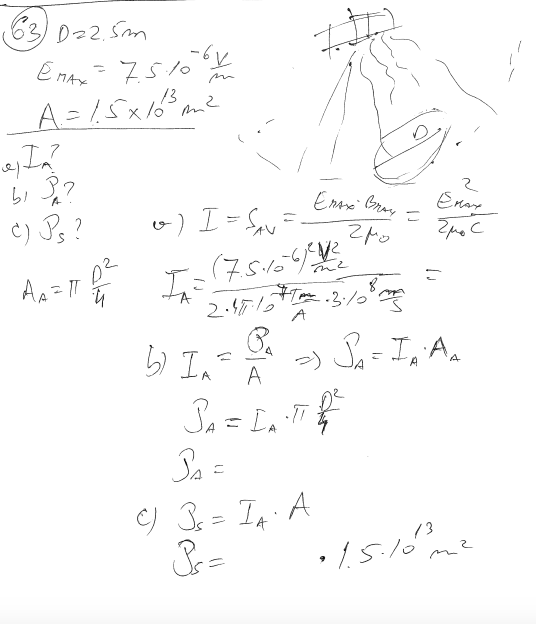 63 D=2.5m
E_MAX = 7.5·10^-6 V/m
A = 1.5×10^13 m^2
a) I_A?
b) P_A?
c) P_S?
D
a) I = S_AV = E_MAX·B_MAX / 2μ_0 = E_MAX^2 / 2μ_0 C
A_A = π D^2/4
I_A = (7.5·10^-6)^2 V^2/m^2 / 2·4π·10^-7 Tm/A · 3·10^8 m/s =
b) I_A = P_A / A ⇒ P_A = I_A · A_A
P_A = I_A · π D^2/4
P_A =
c) P_S = I_A · A
P_S = · 1.5·10^13 m^2